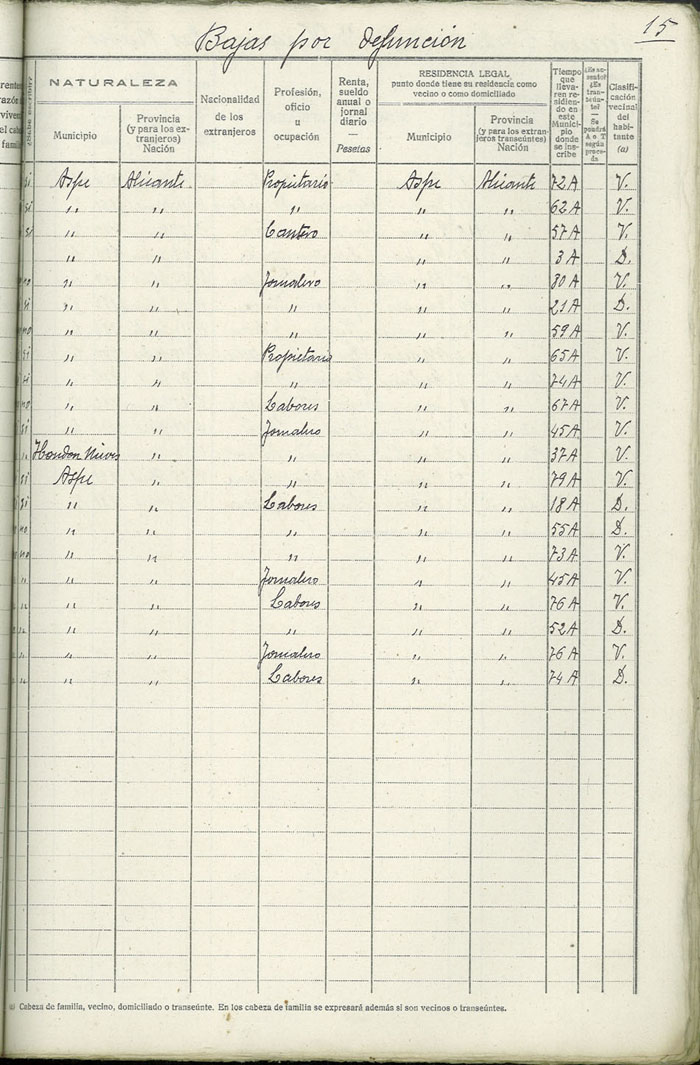 Bajas por defunción
15
¿Sabe escribir?
NATURALEZA
Municipio
Provincia (y para los extranjeros) Nación
Nacionalidad de los extranjeros
Profesión, oficio u ocupación
Renta, sueldo anual o jornal diario — Pesetas
RESIDENCIA LEGAL
punto donde tiene su residencia como vecino o como domiciliado
Municipio
Provincia (y para los extranjeros transeúntes) Nación
Tiempo que llevaren residiendo en este Municipio donde se inscribe
Clasificación vecinal del habitante (a)
si Aspe Alicante Propietario Aspe Alicante 72 A V.
si " " " " " 62 A V.
si " " Cantero " " 57 A V.
" " " " 3 A D.
no " " Jornalero " " 80 A V.
si " " " " " 21 A D.
no " " " " " 59 A V.
si " " Propietario " " 65 A V.
si " " " " " 74 A V.
no " " Labores " " 67 A V.
si " " Jornalero " " 45 A V.
" Hondon Nieves " " " " 37 A V.
si Aspe " " " " 79 A V.
si " " Labores " " 18 A D.
no " " " " " 55 A D.
no " " " " " 73 A V.
" " " Jornalero " " 45 A V.
" " " Labores " " 76 A V.
" " " " " " 52 A D.
" " " Jornalero " " 76 A V.
" " " Labores " " 74 A D.
Cabeza de familia, vecino, domiciliado o transeúnte. En los cabeza de familia se expresará además si son vecinos o transeúntes.